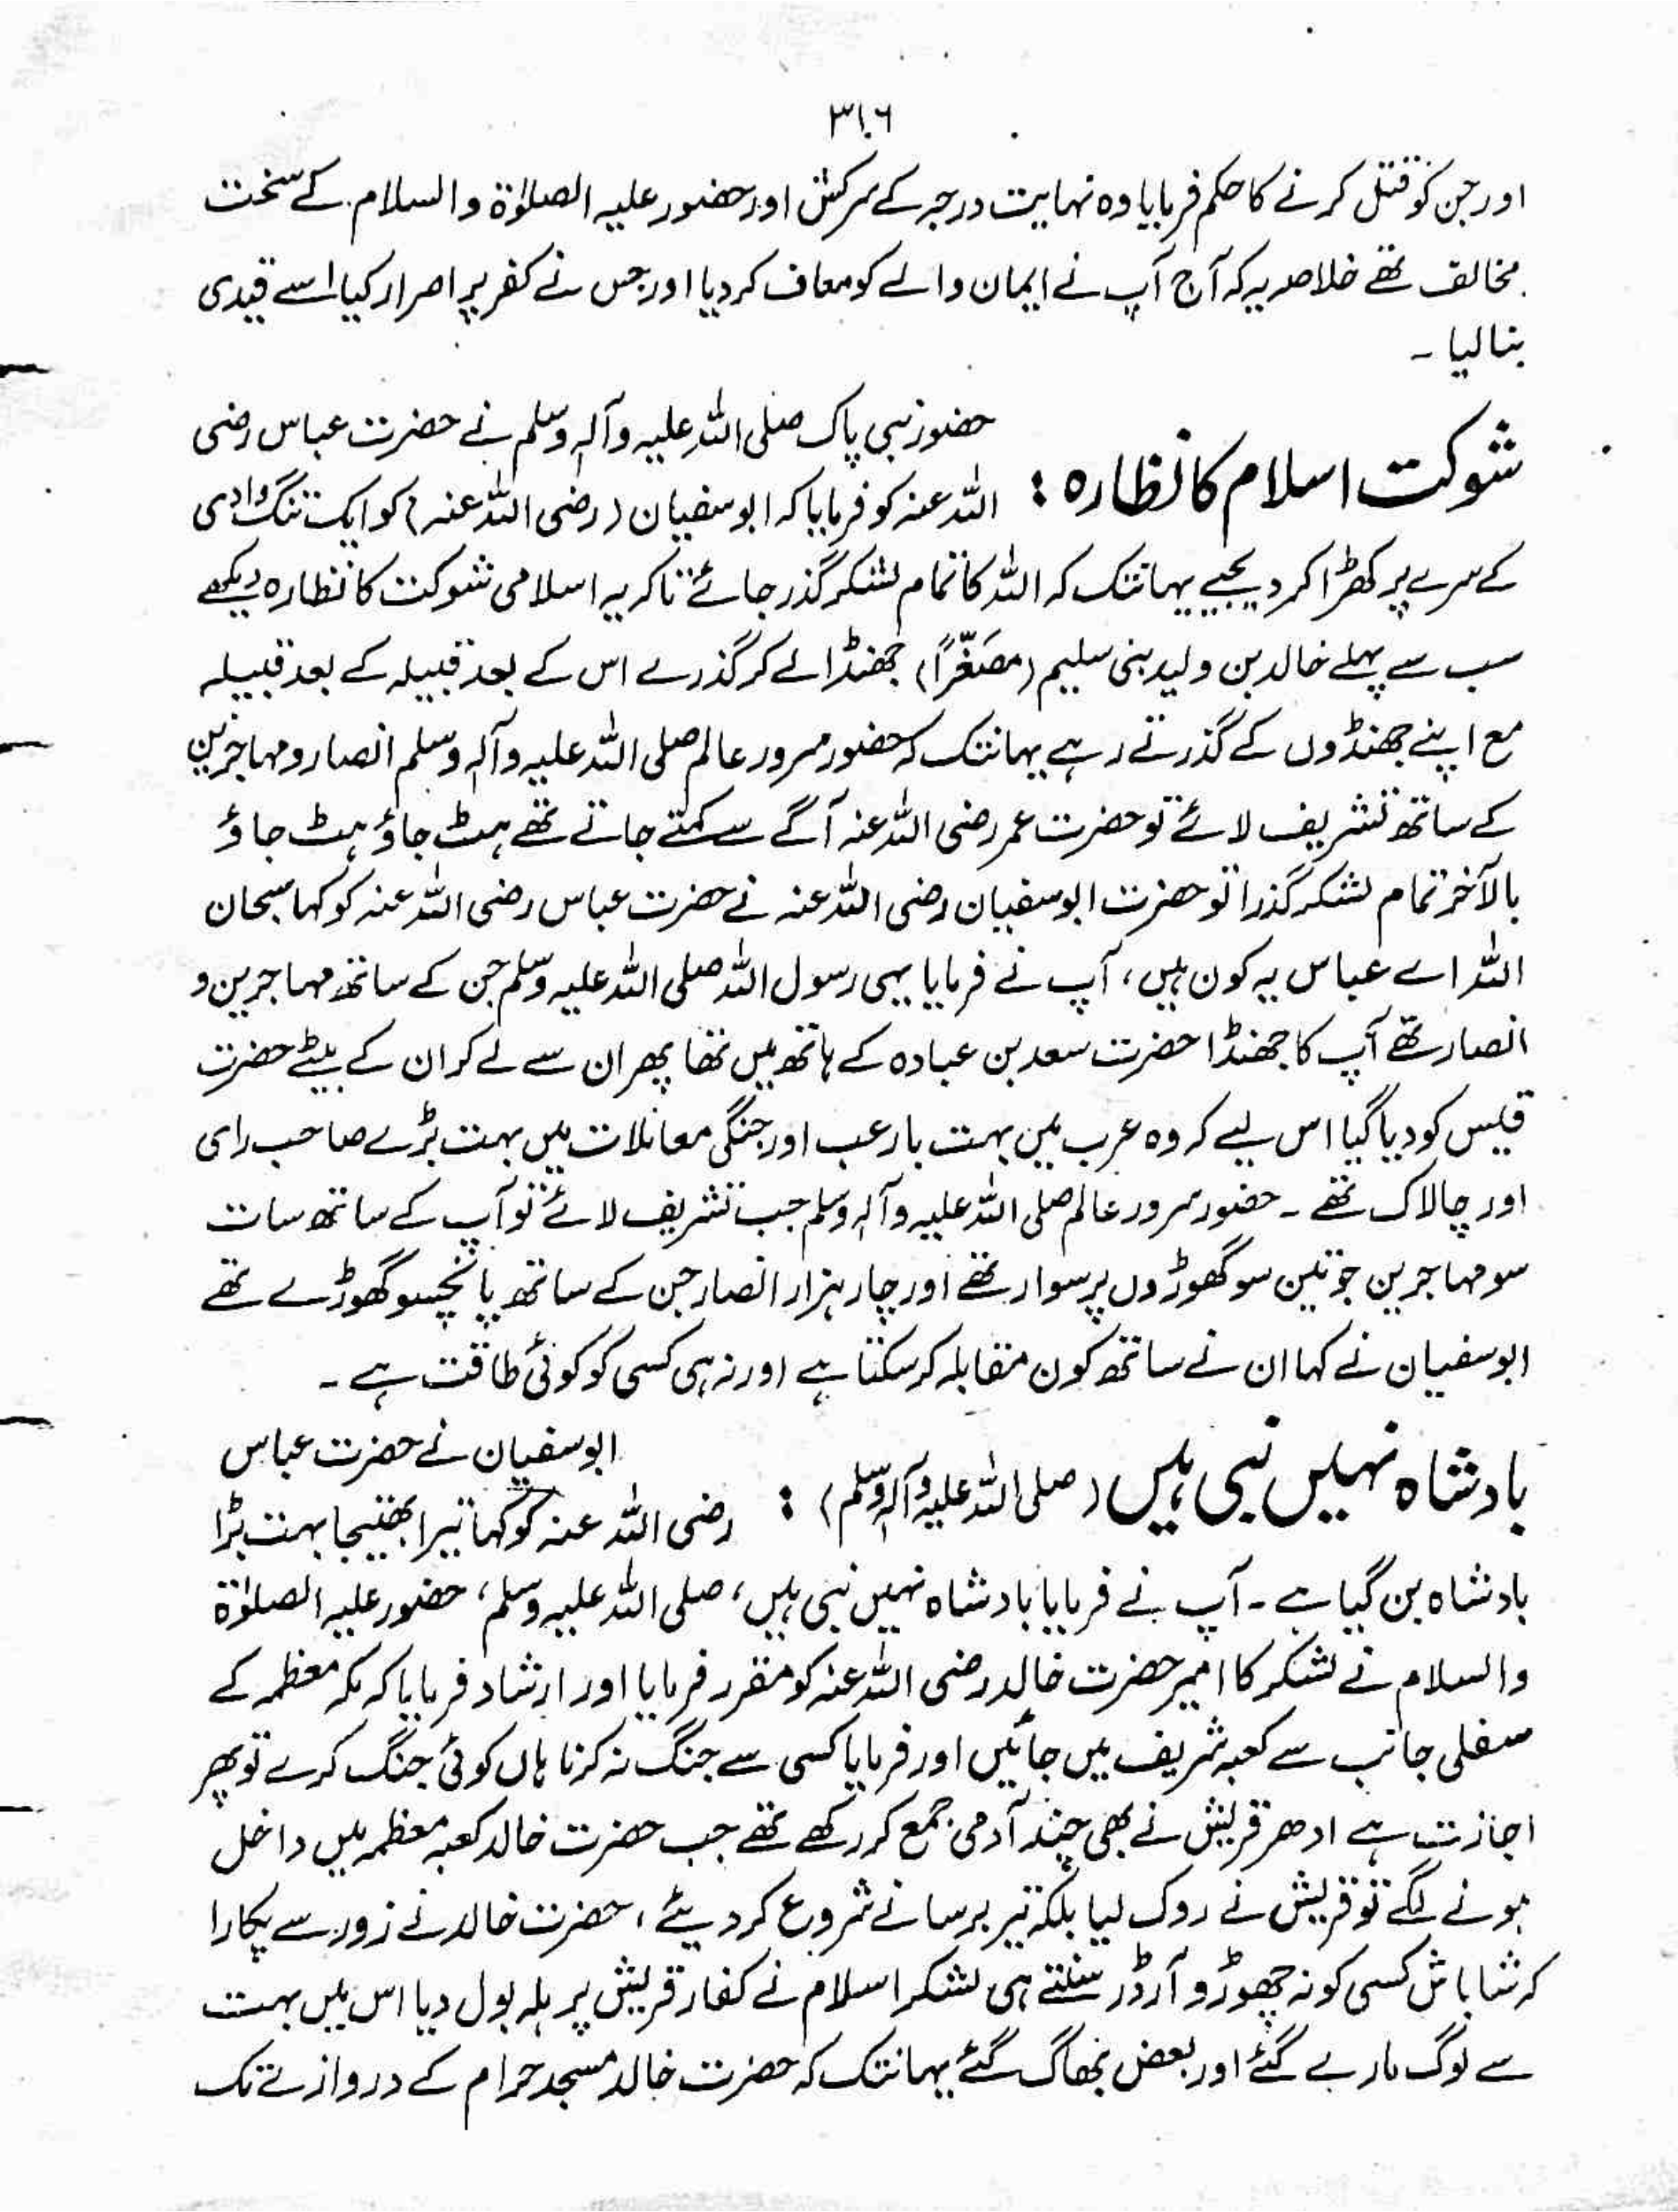 ۳۱۶
اور جن کو قتل کرنے کا حکم فرمایا وہ نہایت درجہ کے سرکش اور حضور علیہ الصلوٰۃ والسلام کے سخت
مخالف تھے خلاصہ یہ کہ آج آپ نے ایمان والے کو معاف کردیا اور جس نے کفر پر اصرار کیا اسے قیدی
بنالیا ۔
حضور نبی پاک صلی اللہ علیہ وآلہ وسلم نے حضرت عباس رضی
شوکت اسلام کا نظارہ : اللہ عنہ کو فرمایا کہ ابوسفیان (رضی اللہ عنہ) کو ایک تنگ وادی
کے سرے پر کھڑا کر دیجیے یہانتک کہ اللہ کا تمام لشکر گذر جائے تاکہ یہ اسلامی شوکت کا نظارہ دیکھے
سب سے پہلے خالد بن ولید بنی سلیم (مصَغّراً) جھنڈا لے کر گذرے اس کے بعد قبیلہ کے بعد قبیلہ
مع اپنے جھنڈوں کے گذرتے رہے یہانتک کہ حضور سرور عالم صلی اللہ علیہ وآلہ وسلم انصار و مہاجرین
کے ساتھ تشریف لائے تو حضرت عمر رضی اللہ عنہ آگے سے کہتے جاتے تھے ہٹ جاؤ ہٹ جاؤ
بالآخر تمام لشکر گذرا تو حضرت ابوسفیان رضی اللہ عنہ نے حضرت عباس رضی اللہ عنہ کو کہا سبحان
اللہ اے عباس یہ کون ہیں، آپ نے فرمایا یہی رسول اللہ صلی اللہ علیہ وسلم جن کے ساتھ مہاجرین و
انصار تھے آپ کا جھنڈا حضرت سعد بن عبادہ کے ہاتھ میں تھا پھر ان سے لے کر ان کے بیٹے حضرت
قیس کو دیا گیا اس لیے کہ وہ عرب میں بہت بارعب اور جنگی معاملات میں بہت بڑے صاحب رای
اور چالاک تھے ۔ حضور سرور عالم صلی اللہ علیہ وآلہ وسلم جب تشریف لائے تو آپ کے ساتھ سات
سو مہاجرین جو تین سو گھوڑوں پر سوار تھے اور چار ہزار انصار جن کے ساتھ پانچسو گھوڑے تھے
ابوسفیان نے کہا ان نے ساتھ کون مقابلہ کرسکتا ہے اور نہ ہی کسی کو کوئی طاقت ہے ۔
ابوسفیان نے حضرت عباس
بادشاہ نہیں نبی ہیں (صلی اللہ علیہ وآلہ وسلم) : رضی اللہ عنہ کو کہا تیرا بھتیجا بہت بڑا
بادشاہ بن گیا ہے ۔ آپ نے فرمایا بادشاہ نہیں نبی ہیں، صلی اللہ علیہ وسلم، حضور علیہ الصلوٰۃ
والسلام نے لشکر کا امیر حضرت خالد رضی اللہ عنہ کو مقرر فرمایا اور ارشاد فرمایا کہ مکہ معظمہ کے
سفلی جانب سے کعبہ شریف میں جائیں اور فرمایا کسی سے جنگ نہ کرنا ہاں کوئی جنگ کرے تو پھر
اجازت ہے ادھر قریش نے بھی چند آدمی جمع کر رکھے تھے جب حضرت خالد کعبہ معظمہ میں داخل
ہونے لگے تو قریش نے روک لیا بلکہ تیر برسانے شروع کردیئے، حضرت خالد نے زور سے پکارا
کہ شاباش کسی کو نہ چھوڑو آرڈر سنتے ہی لشکر اسلام نے کفار قریش پر ہلہ بول دیا اس میں بہت
سے لوگ مارے گئے اور بعض بھاگ گئے یہانتک کہ حضرت خالد مسجد حرام کے دروازے تک